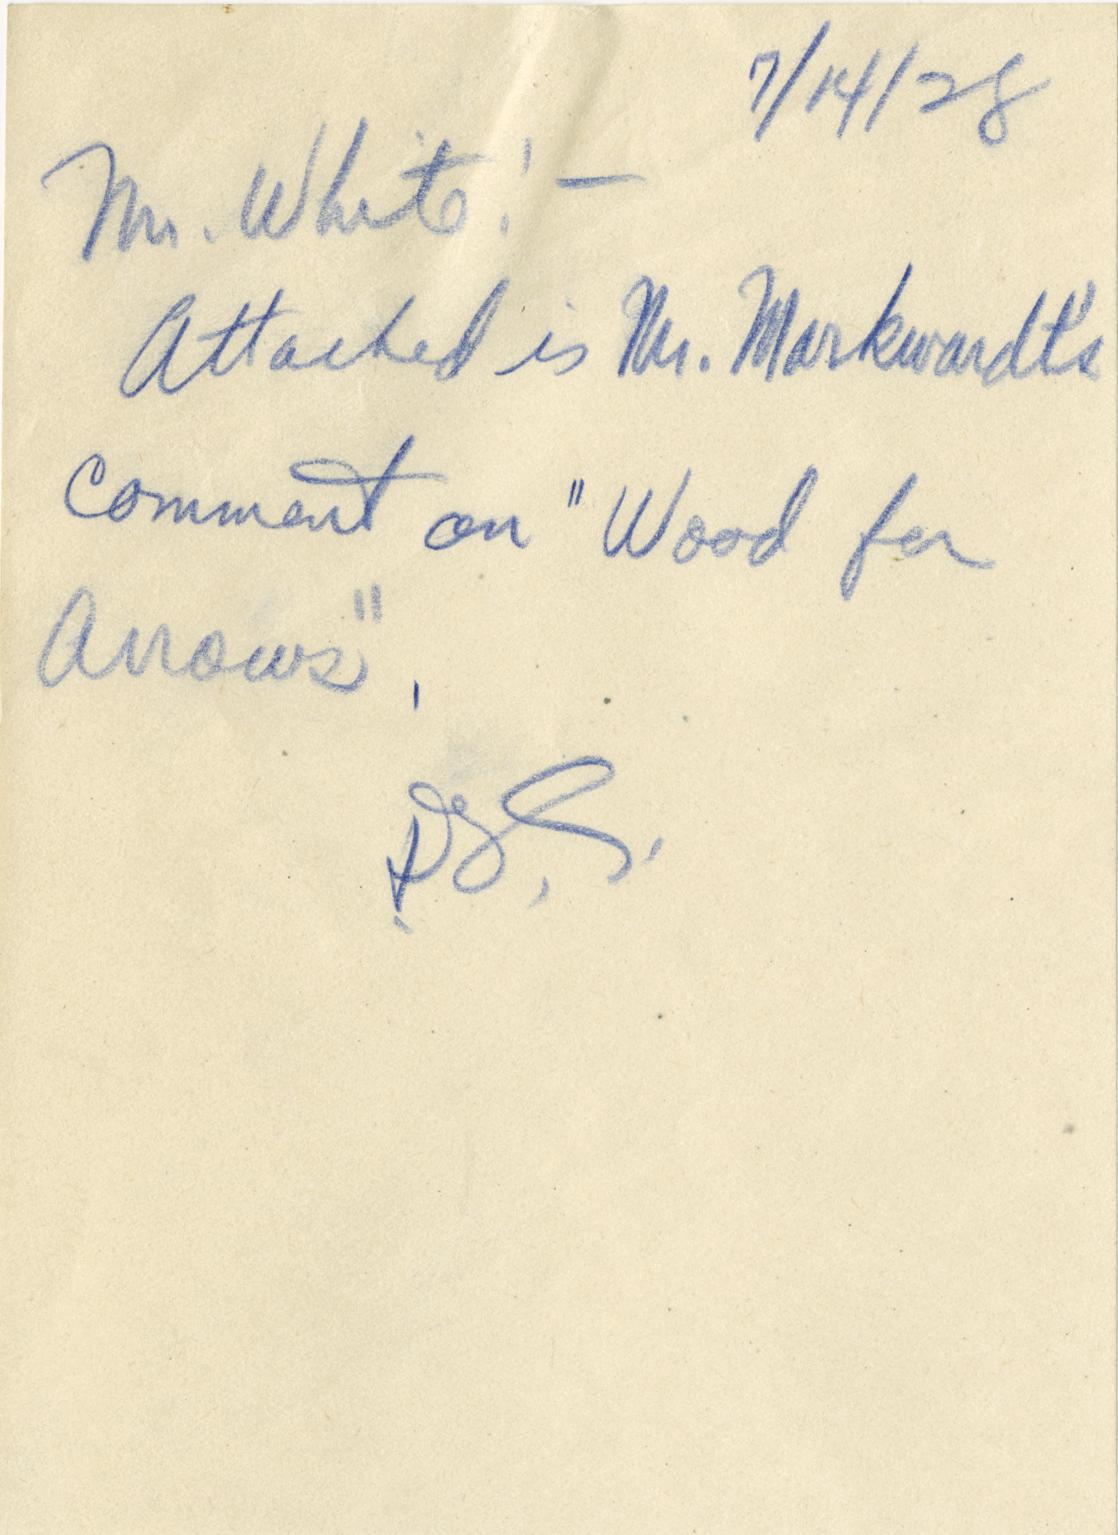 7/14/28
Mr. White:—
Attached is Mr. Markwardt's
comment on "Wood for
Arrows".